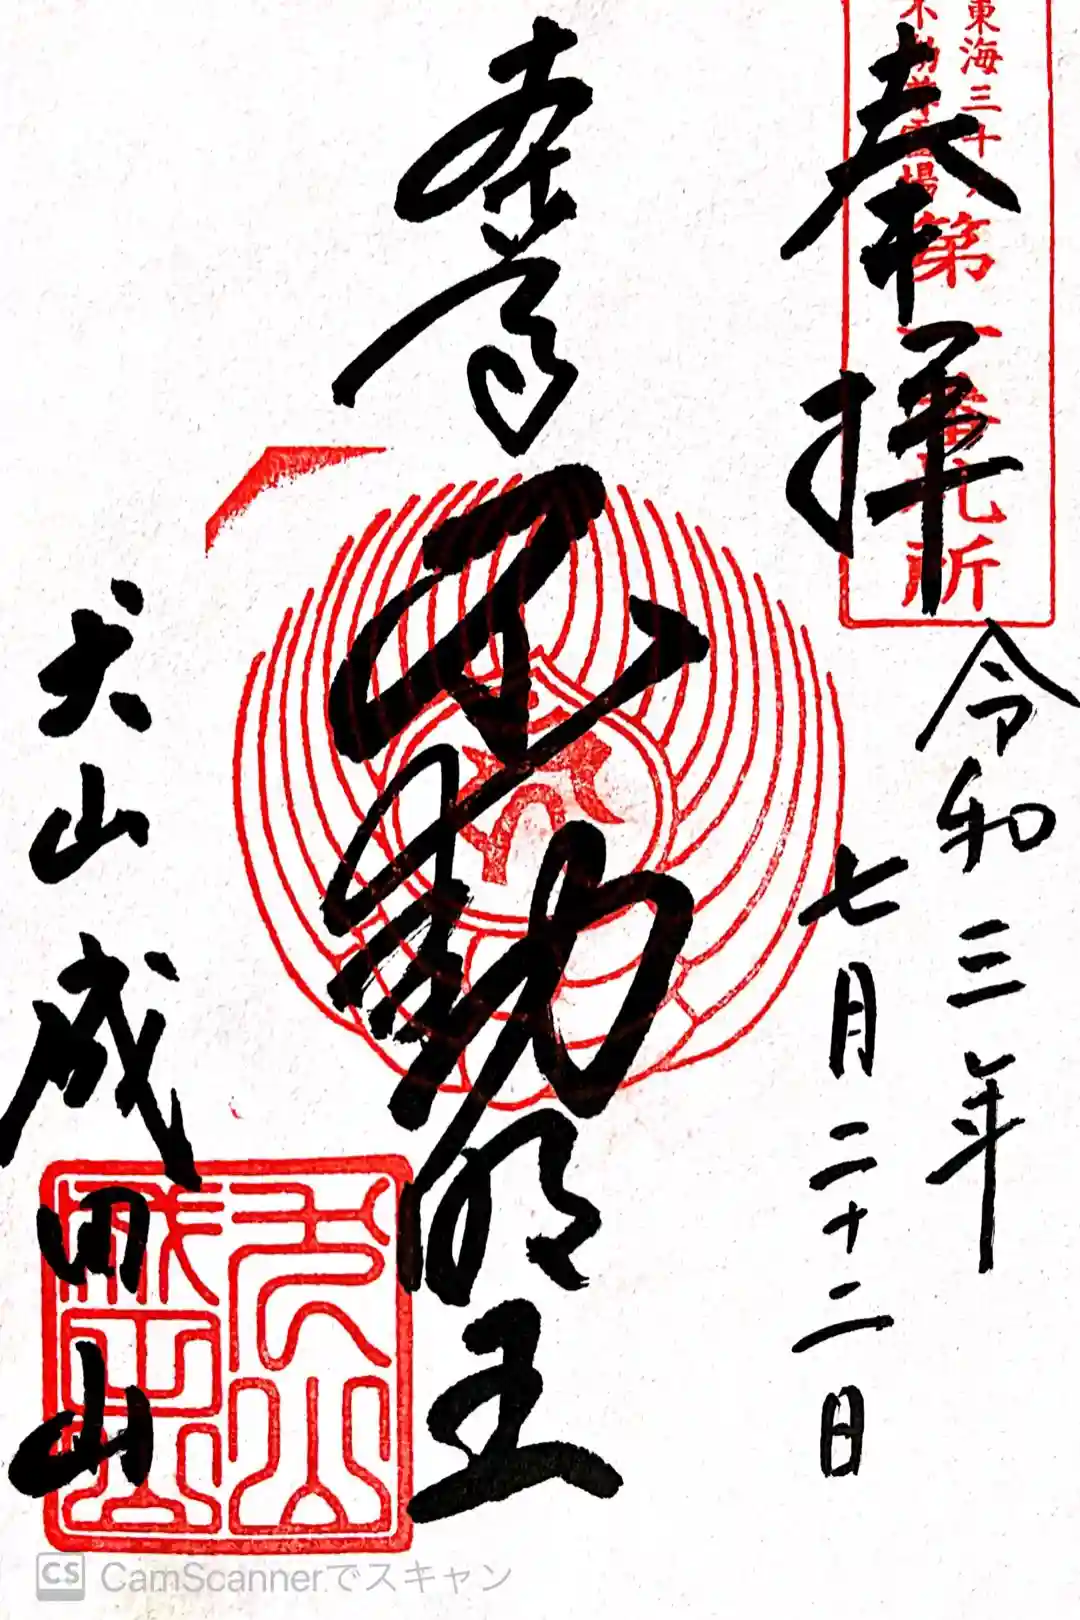 東海三十
不動尊霊場
第一番札所
奉拝
令和三年
七月二十二日
本尊
不動明王
犬山
成田山
CS CamScannerでスキャン